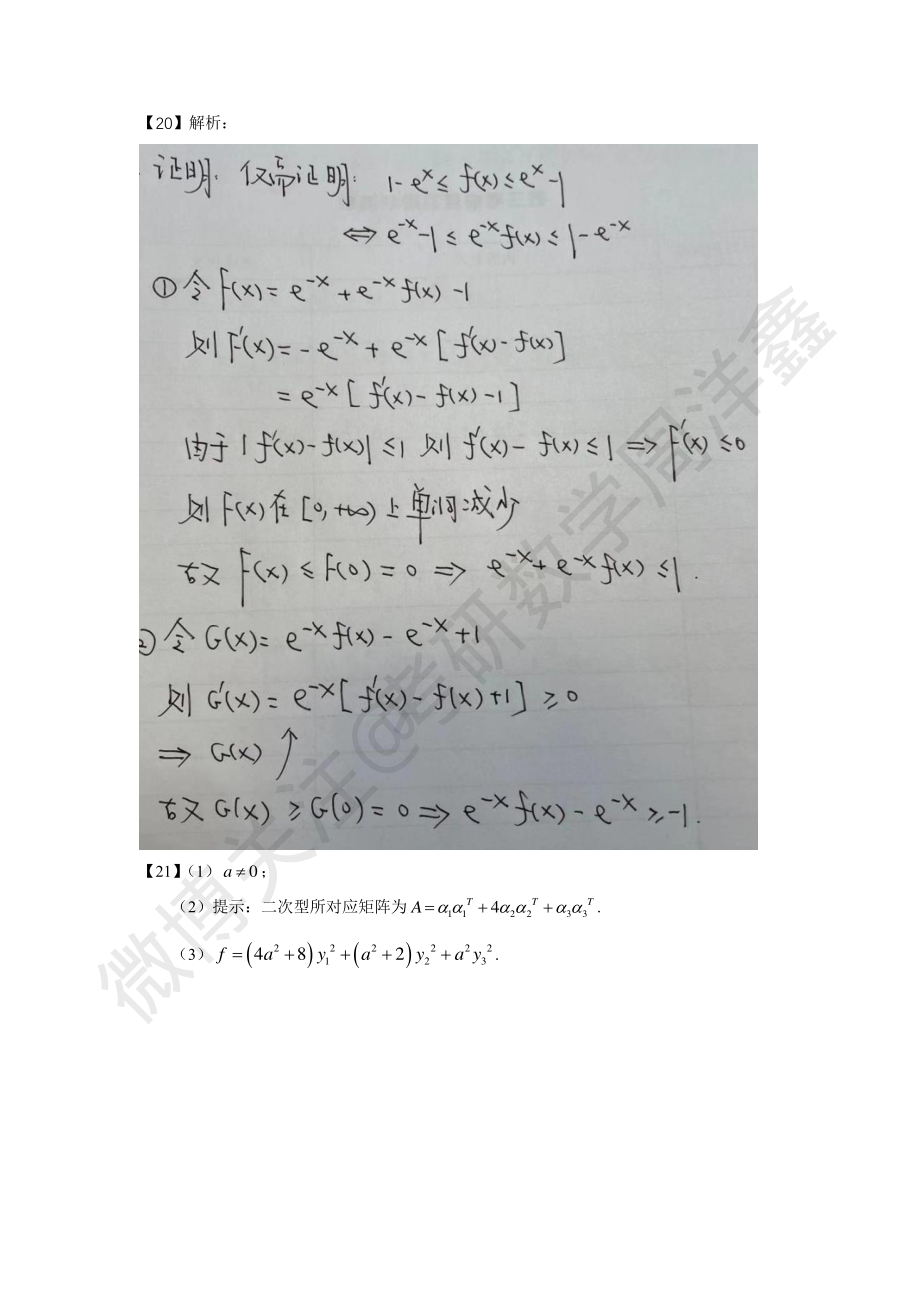 【20】解析：
证明：仅需证明： 1-eˣ ≤ f(x) ≤ eˣ-1
⇔ e⁻ˣ-1 ≤ e⁻ˣf(x) ≤ 1-e⁻ˣ
①令 F(x) = e⁻ˣ + e⁻ˣ f(x) -1
则 F′(x) = - e⁻ˣ + e⁻ˣ [ f′(x) - f(x) ]
= e⁻ˣ [ f′(x) - f(x) -1 ]
由于 | f′(x) - f(x) | ≤ 1 则 f′(x) - f(x) ≤ 1 ⇒ F′(x) ≤ 0
则 F(x) 在 [0, +∞) 上单调减少
故 F(x) ≤ F(0) = 0 ⇒ e⁻ˣ + e⁻ˣ f(x) ≤ 1 .
② 令 G(x) = e⁻ˣ f(x) - e⁻ˣ +1
则 G′(x) = e⁻ˣ [ f′(x) - f(x) +1 ] ≥ 0
⇒ G(x) ↑
故 G(x) ≥ G(0) = 0 ⇒ e⁻ˣ f(x) - e⁻ˣ ≥ -1 .
【21】（1） a ≠ 0 ；
（2）提示：二次型所对应矩阵为 A = α₁α₁ᵀ + 4α₂α₂ᵀ + α₃α₃ᵀ .
（3） f = (4a² + 8) y₁² + (a² + 2) y₂² + a² y₃² .
微博关注@考研数学周洋鑫